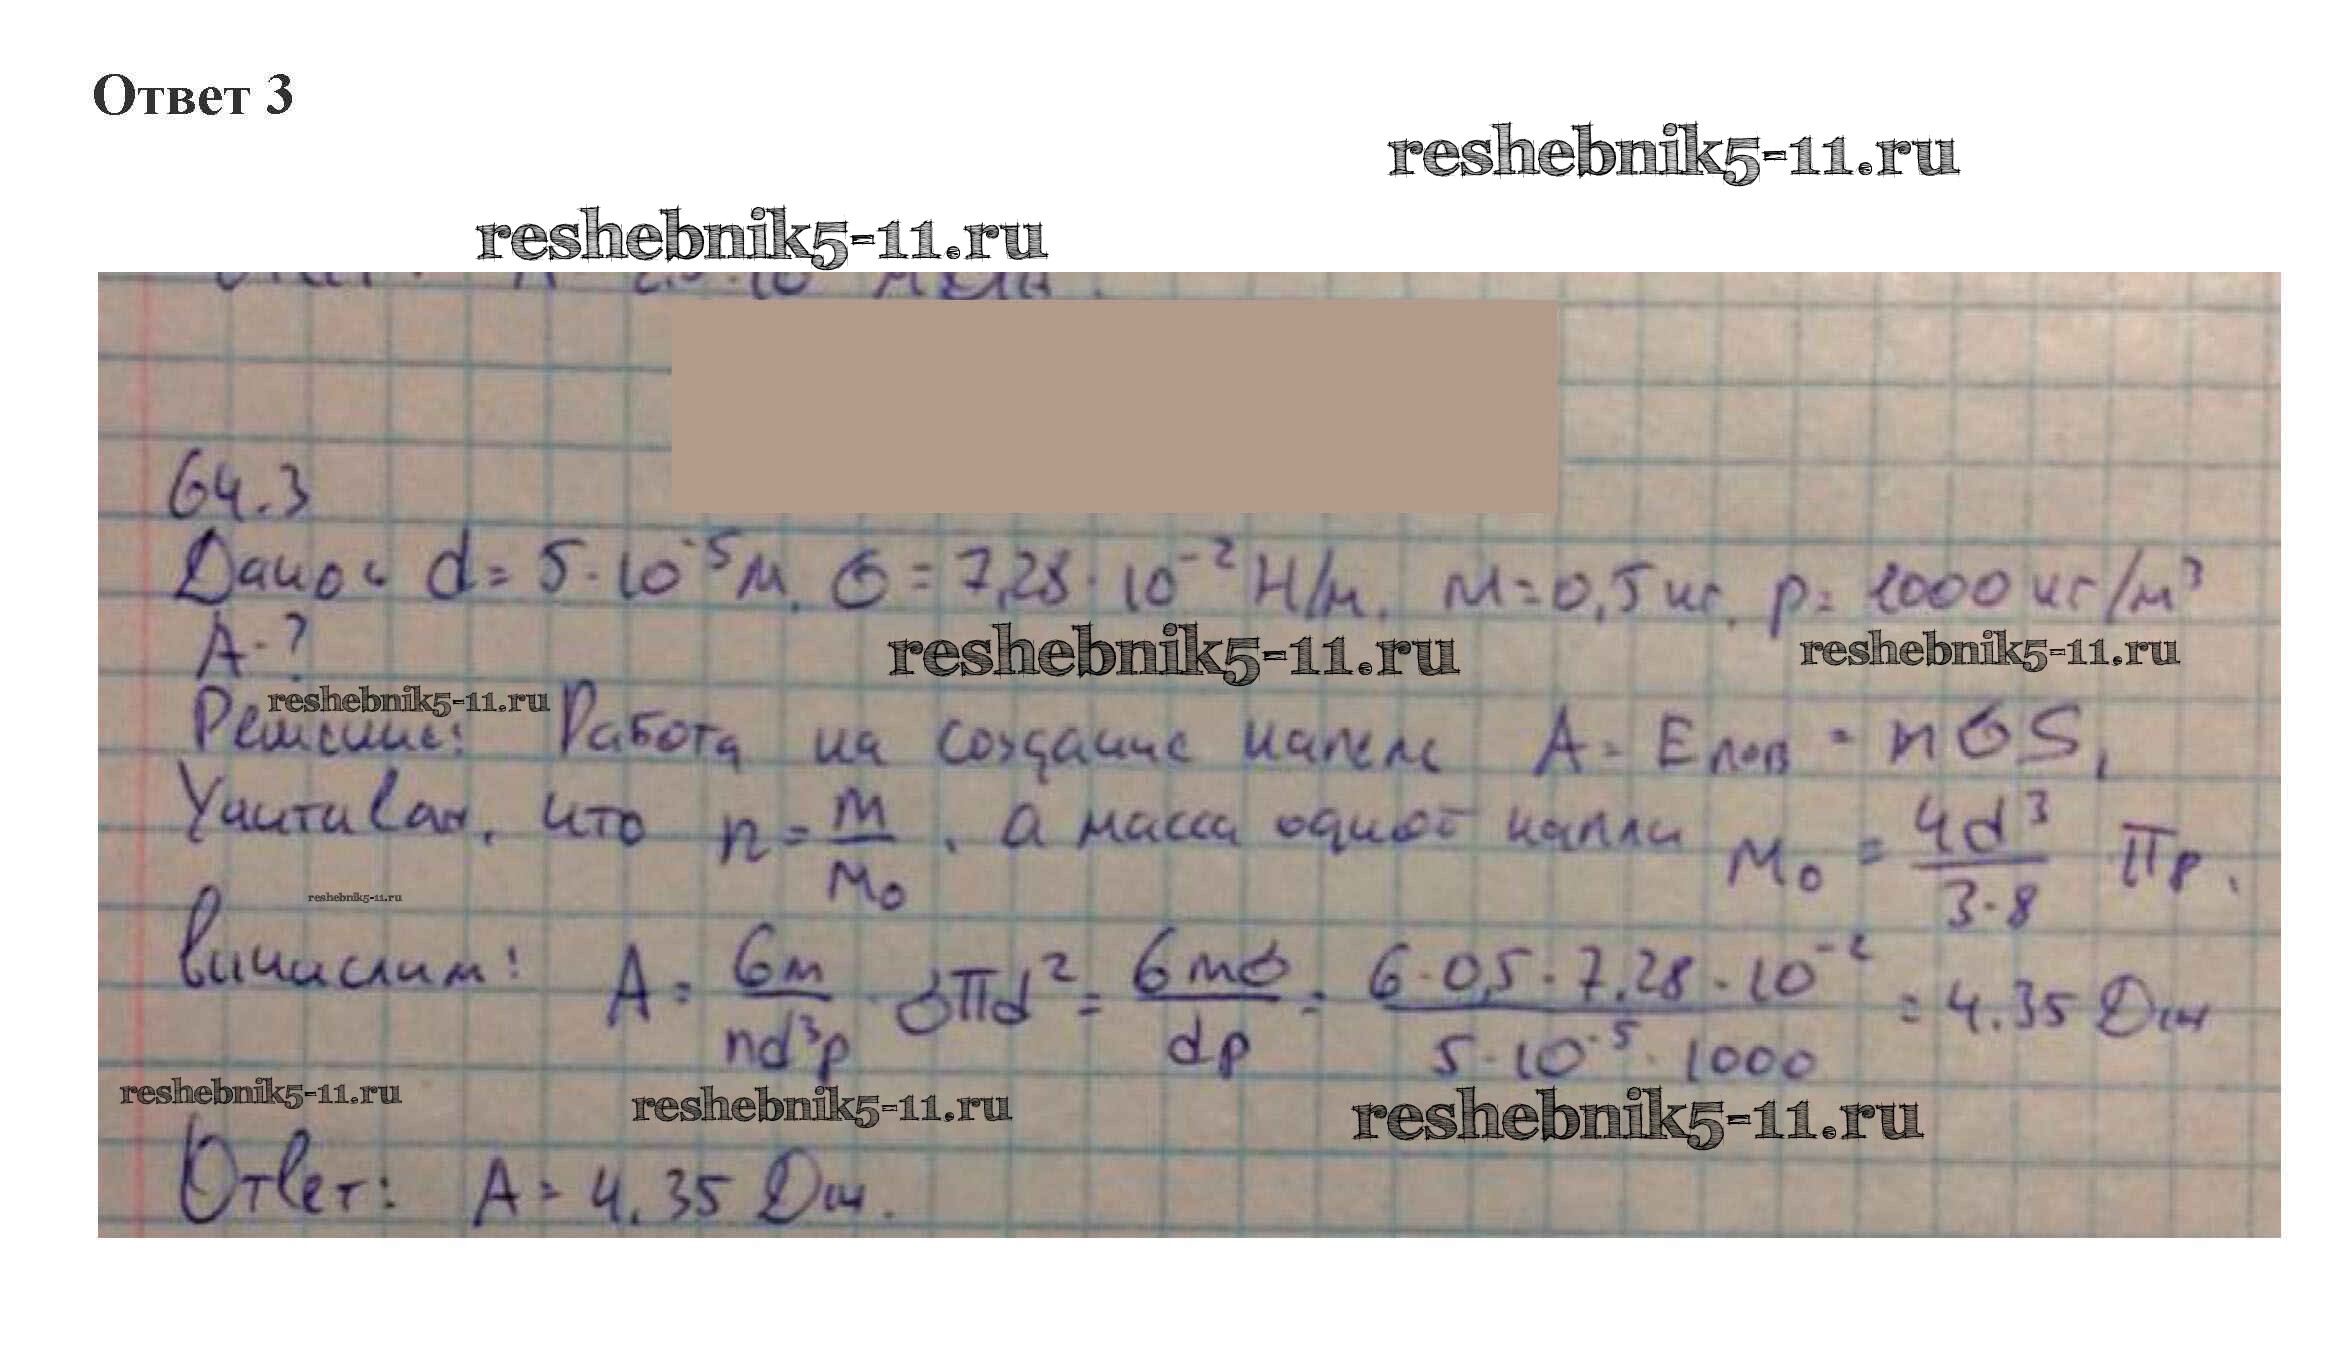 Ответ 3
reshebnik5-11.ru
reshebnik5-11.ru
64.3
Дано: d = 5·10⁻⁵ м. σ = 7,28·10⁻² Н/м. m = 0,5 кг. ρ = 1000 кг/м³
A-?
reshebnik5-11.ru
reshebnik5-11.ru
reshebnik5-11.ru
Решение: Работа на создание капель A = Eпов = nσS,
Учитывая, что n = m/m₀, а масса одной капли m₀ = 4d³/3·8 πρ.
reshebnik5-11.ru
Вычислим: A = 6m/πd³ρ · σπd² = 6mσ/dρ = 6·0,5·7,28·10⁻²/5·10⁻⁵·1000 = 4.35 Дж
reshebnik5-11.ru
reshebnik5-11.ru
reshebnik5-11.ru
Ответ: A = 4.35 Дж.